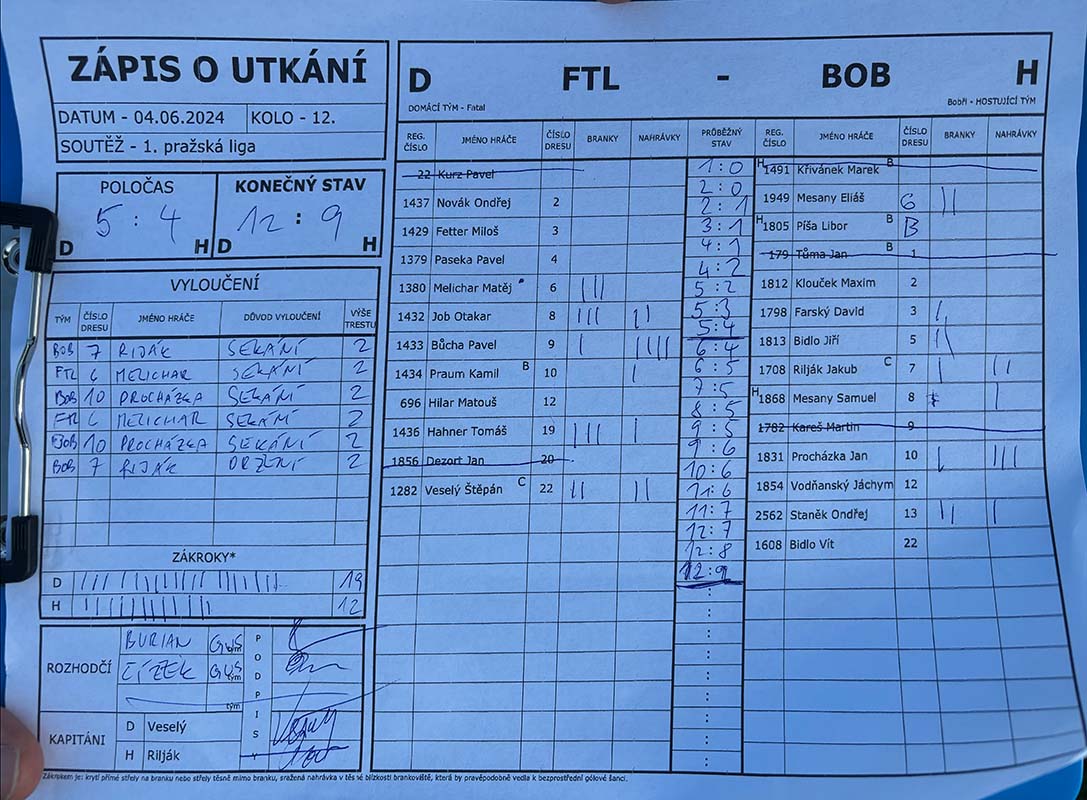 ZÁPIS O UTKÁNÍ
DATUM - 04.06.2024 KOLO - 12.
SOUTĚŽ - 1. pražská liga
POLOČAS KONEČNÝ STAV
5 : 4 12 : 9
D H D H
VYLOUČENÍ
TÝM ČÍSLO DRESU JMÉNO HRÁČE DŮVOD VYLOUČENÍ VÝŠE TRESTU
BOB 7 RIJÁK SEKÁNÍ 2
FTL 6 MELICHAR SEKÁNÍ 2
BOB 10 PROCHÁZKA SEKÁNÍ 2
FTL 6 MELICHAR SEKÁNÍ 2
BOB 10 PROCHÁZKA SEKÁNÍ 2
BOB 7 RIJÁK DRŽENÍ 2
ZÁKROKY*
D 19
H 12
ROZHODČÍ
BURIAN GUS tým
ČÍŽEK GUS tým
tým
PODPISY
KAPITÁNI
D Veselý
H Rilják
D FTL - BOB H
DOMÁCÍ TÝM - Fatal Bobři - HOSTUJÍCÍ TÝM
REG. ČÍSLO JMÉNO HRÁČE ČÍSLO DRESU BRANKY NAHRÁVKY PRŮBĚŽNÝ STAV REG. ČÍSLO JMÉNO HRÁČE ČÍSLO DRESU BRANKY NAHRÁVKY
22 Kurz Pavel
1437 Novák Ondřej 2
1429 Fetter Miloš 3
1379 Paseka Pavel 4
1380 Melichar Matěj 6 |||
1432 Job Otakar 8 ||| ||
1433 Bůcha Pavel 9 | ||||
1434 Praum Kamil B 10 |
696 Hilar Matouš 12
1436 Hahner Tomáš 19 ||| |
1856 Dezort Jan 20
1282 Veselý Štěpán C 22 || ||
1:0
2:0
2:1
3:1
4:1
4:2
5:2
5:3
5:4
6:4
6:5
7:5
8:5
9:5
9:6
10:6
11:6
11:7
12:7
12:8
12:9
H 1491 Křivánek Marek B
1949 Mesany Eliáš 6 ||
H 1805 Píša Libor B B
179 Tůma Jan B 1
1812 Klouček Maxim 2
1798 Farský David 3 |
1813 Bidlo Jiří 5 ||
1708 Rilják Jakub C 7 | ||
H 1868 Mesany Samuel 8 |
1782 Kareš Martin 9
1831 Procházka Jan 10 | |||
1854 Vodňanský Jáchym 12
2562 Staněk Ondřej 13 || |
1608 Bidlo Vít 22
Zákrokem je: krytí přímé střely na branku nebo střely těsně mimo branku, sražená nahrávka v těsné blízkosti brankoviště, která by pravěpodobně vedla k bezprostřední gólové šanci.